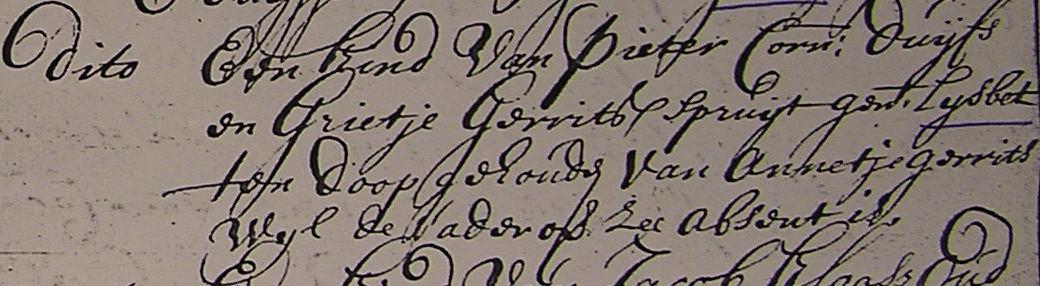 dito Een kind Van Pieter Corn: Duijfs
en Grietje Gerrits Spruijt gen: Lysbet
ten doop gehoudē Van Annetje gerrits
Wyl de Vader op Zee absent is.
Een kind Van Jacob Klaasz Oud